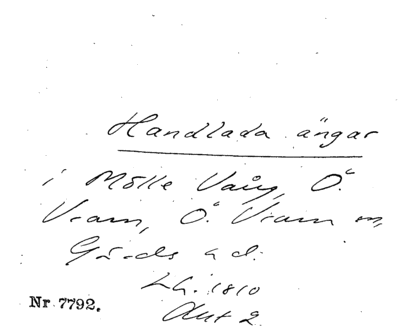 Handlada ängar
i Mölle Vång, Ö.
Vram, Ö. Vram m,
Gärds h d.
LG. 1810
Akt 2
Nr 7792.